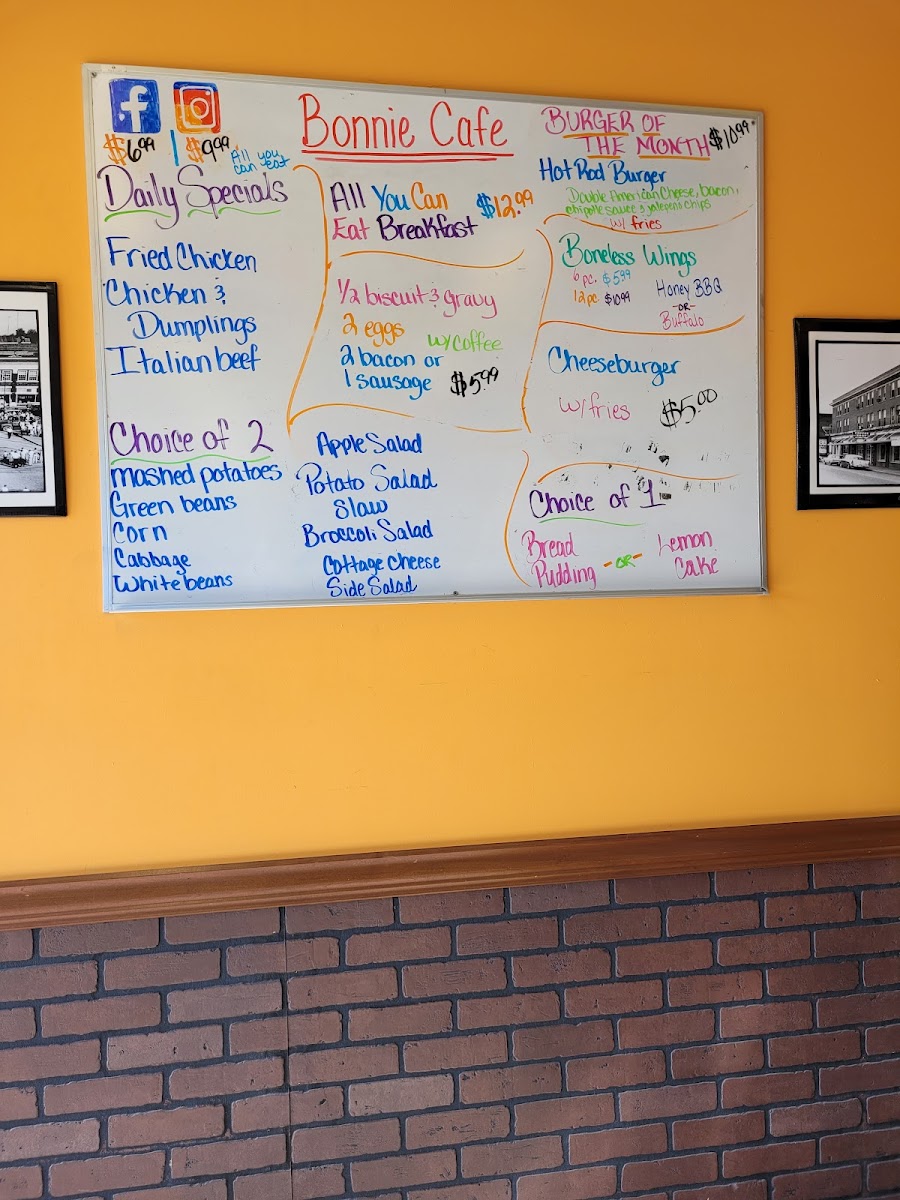 Bonnie Cafe
$6.99 | $9.99 All you
can eat
Daily Specials
Fried Chicken
Chicken &
Dumplings
Italian beef
Choice of 2
mashed potatoes
Green beans
Corn
Cabbage
White beans
All You Can $12.99
Eat Breakfast
1/2 biscuit & gravy
2 eggs w/coffee
2 bacon or
1 sausage $5.99
Apple Salad
Potato Salad
Slaw
Broccoli Salad
Cottage Cheese
Side Salad
BURGER OF
THE MONTH $10.99
Hot Rod Burger
Double American Cheese, bacon,
chipotle sauce & jalepeno chips
w/ fries
Boneless Wings
6 pc. $5.99
12 pc $10.99
Honey BBQ
-OR-
Buffalo
Cheeseburger
w/fries $5.00
Choice of 1
Bread
Pudding
-OR-
Lemon
Cake